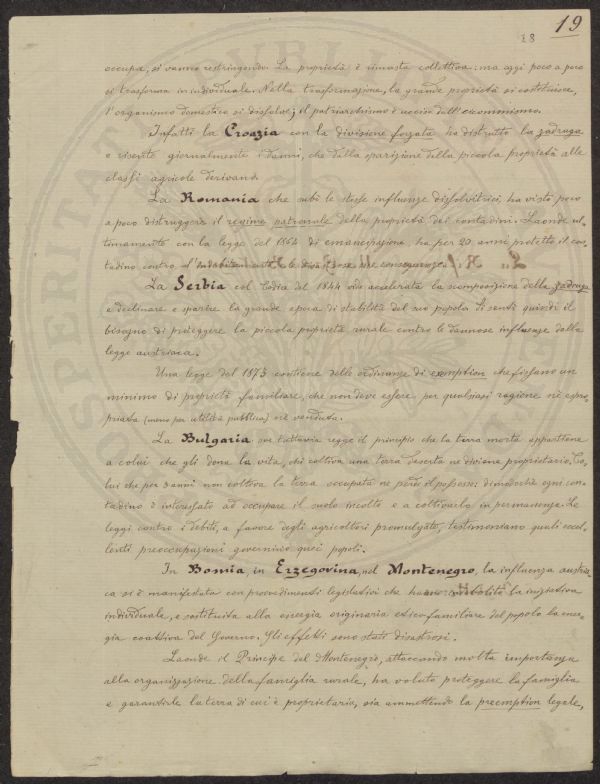 19
18
occupa, si vanno restringendo. La proprietà è rimasta collettiva: ma oggi poco a poco
si trasforma in individuale. Nella trasformazione, la grande proprietà si costituisce,
l'organismo domestico si dissolve; il patriarchismo è ucciso dall'economismo.
Infatti la Croazia con la divisione forzata ha distrutto la zadruga
e risente giornalmente i danni, che dalla sparizione della piccola proprietà alle
classi agricole derivano.
La Romania che subì le stesse influenze dissolvitrici, ha visto poco
a poco distruggere il regime patronale della proprietà dei contadini. Laonde ul-
timamente con la legge del 1864 di emancipazione ha per 20 anni protetto il con-
tadino contro le disastrose conseguenze.
La Serbia col Codice del 1844 vide accelerata la scomposizione della zadruga
e declinare e sparire la grande epoca di stabilità del suo popolo. Si sentì quindi il
bisogno di proteggere la piccola proprietà rurale contro le dannose influenze della
legge austriaca.
Una legge del 1873 contiene delle ordinanze di exemption che fissano un
minimo di proprietà familiare, che non deve essere per qualsiasi ragione nè espro-
priata (meno per utilità pubblica) nè venduta.
La Bulgaria ove tuttavia regge il principio che la terra morta appartiene
a colui che gli dona la vita, chi coltiva una terra deserta ne diviene proprietario. Co-
lui che per 3 anni non coltiva la terra occupata ne perde il possesso: dimodochè ogni con-
tadino è interessato ad occupare il suolo incolto e a coltivarlo in permanenza. Le
leggi contro i debiti, a favore degli agricoltori promulgate, testimoniano quali eccel-
lenti preoccupazioni governino quei popoli.
In Bosnia, in Erzegovina, nel Montenegro, la influenza austria-
ca si è manifestata con provvedimenti legislativi che hanno la iniziativa
individuale, e sostituita alla energia originaria etico-familiare del popolo la ener-
gia coattiva del Governo. Gli effetti sono stati disastrosi.
Laonde il Principe del Montenegro, attaccando molta importanza
alla organizzazione della famiglia rurale, ha voluto proteggere la famiglia
e garantirle la terra di cui è proprietaria, sia ammettendo la preemption legale,